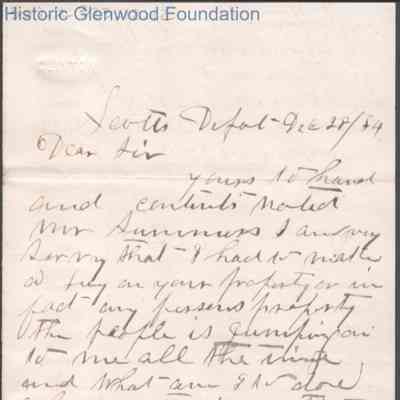 Historic Glenwood Foundation
Scotts Depot Dec 28/84
Dear Sir
yours to hand
and contents noted
Mr Summers I am very
sorry that I had to make
a levy on your property or in
fact any persons property
the people is jumping on
to me all the time
and what am I to doe